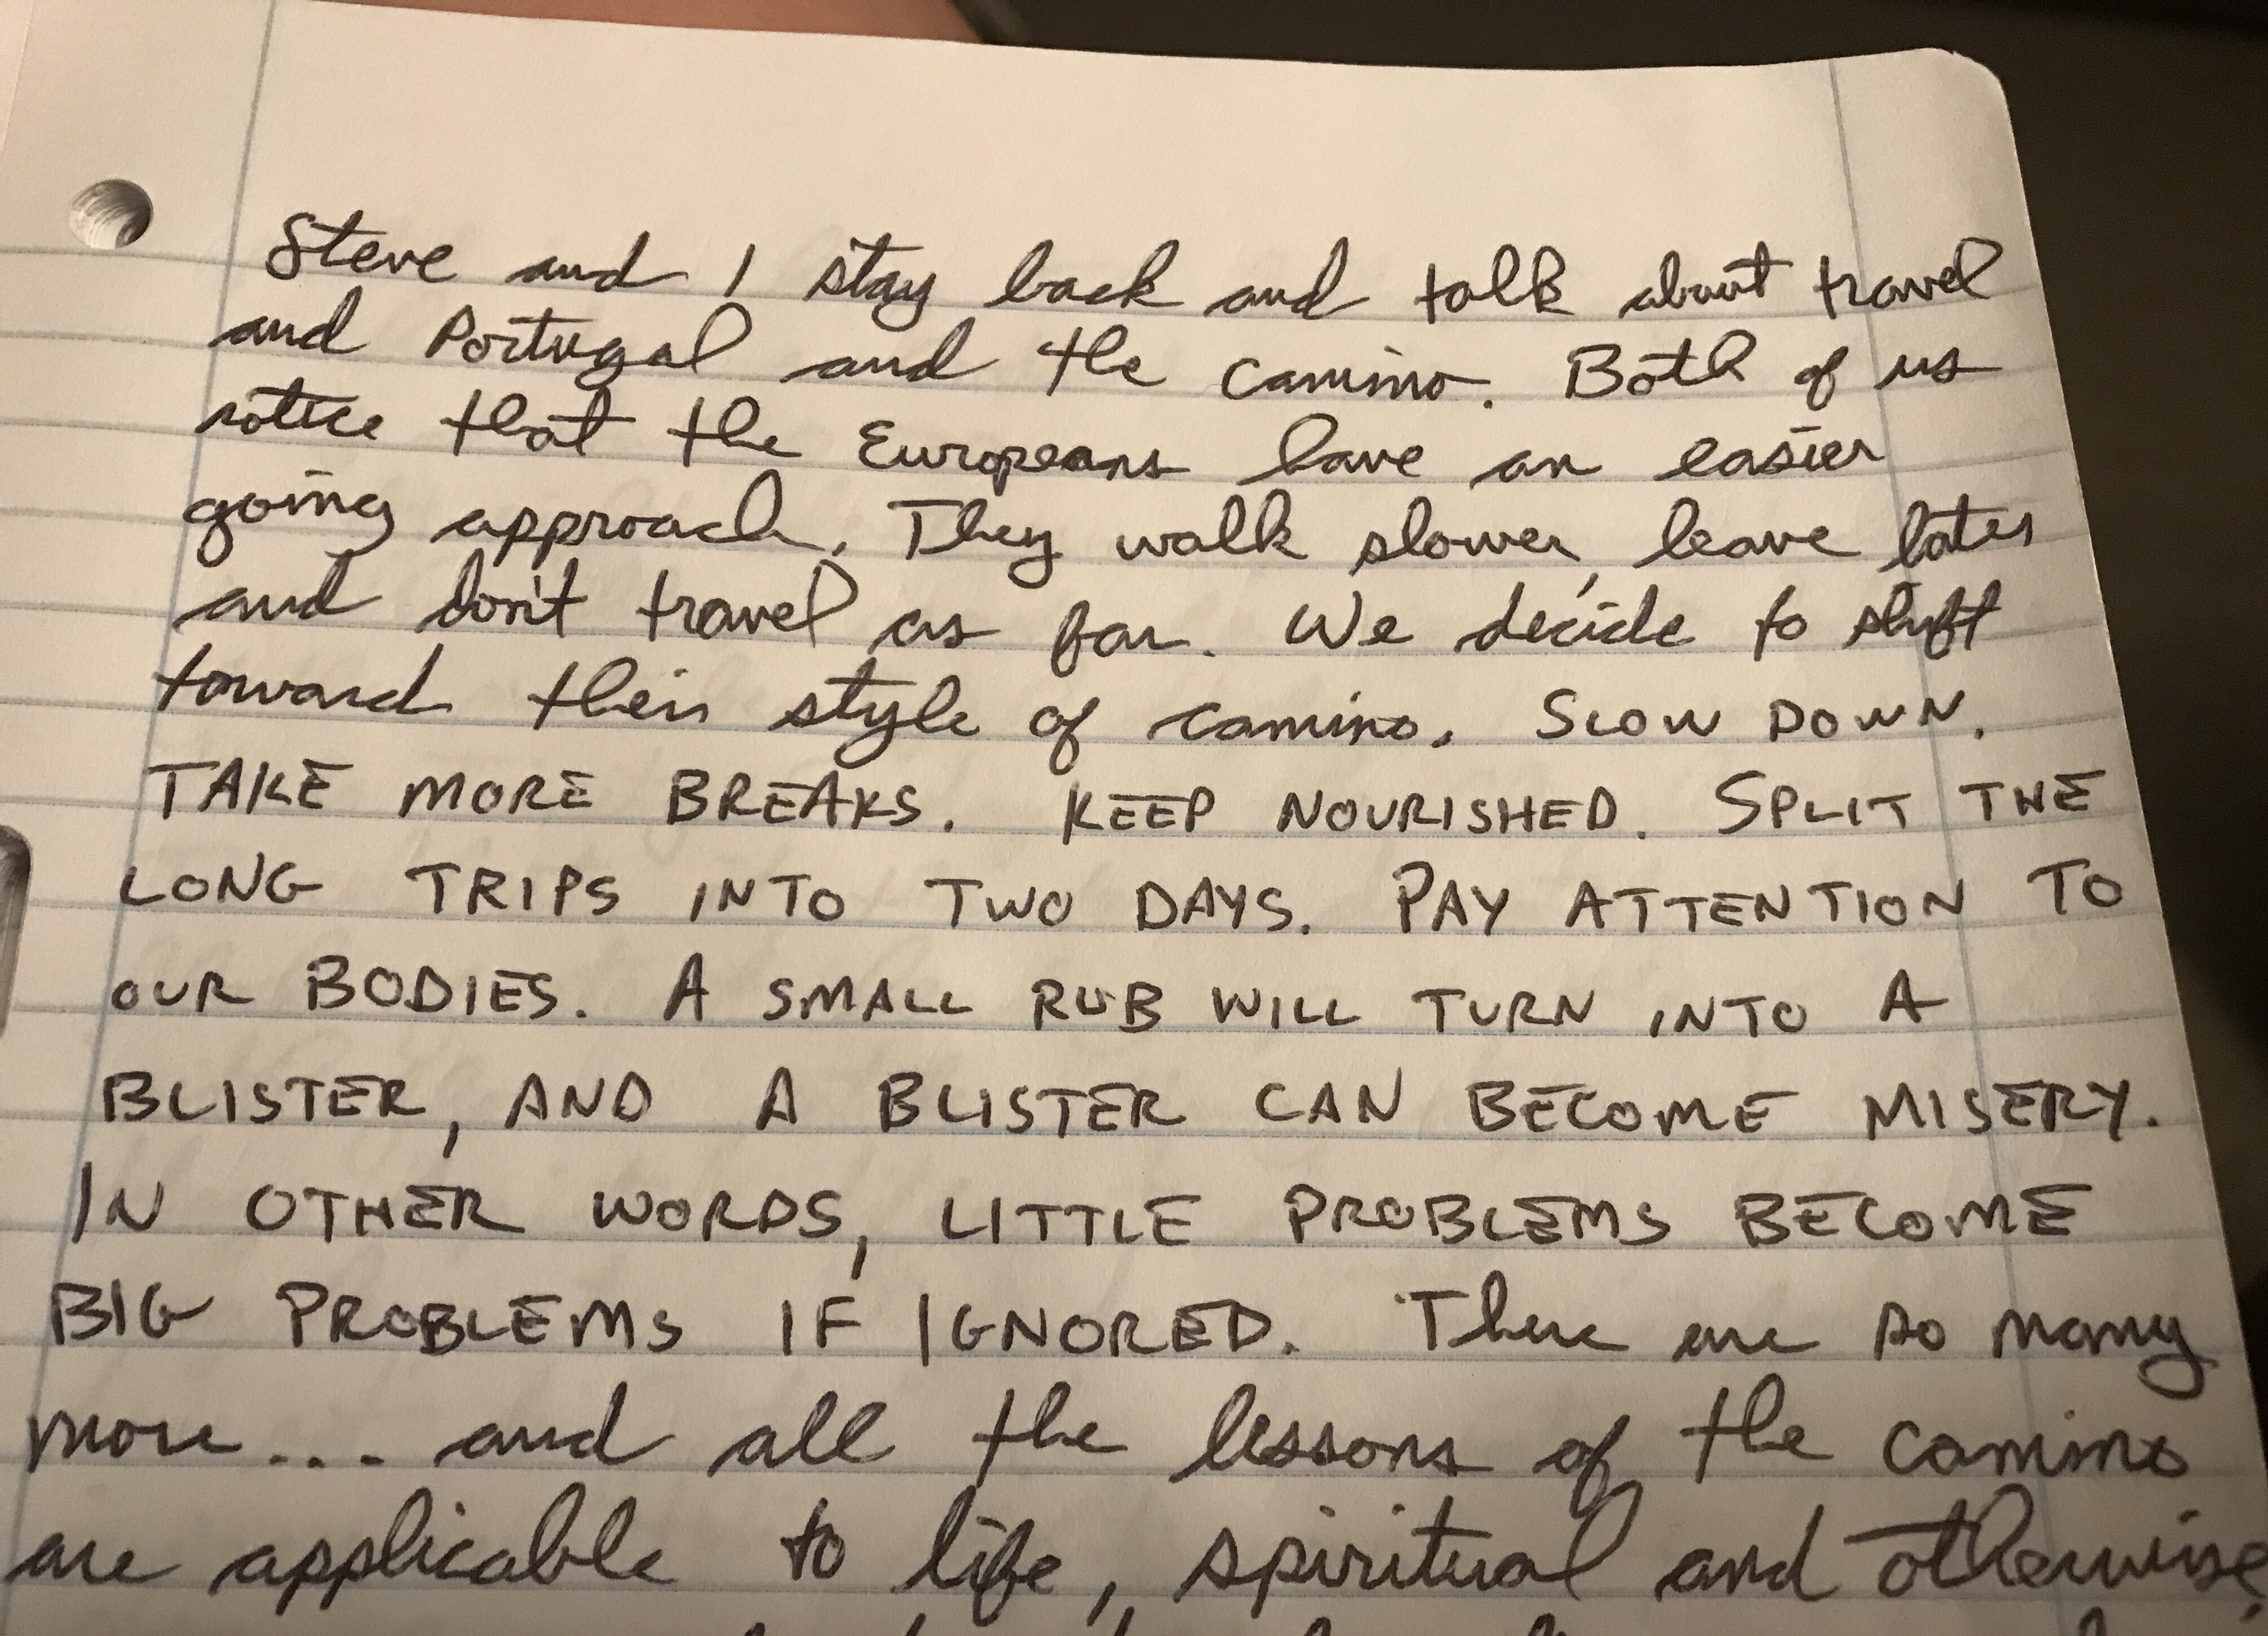 Steve and I stay back and talk about travel
and Portugal and the camino. Both of us
notice that the Europeans have an easier
going approach. They walk slower, leave later
and don't travel as far. We decide to shift
toward their style of camino. SLOW DOWN.
TAKE MORE BREAKS. KEEP NOURISHED. SPLIT THE
LONG TRIPS INTO TWO DAYS. PAY ATTENTION TO
OUR BODIES. A SMALL RUB WILL TURN INTO A
BLISTER, AND A BLISTER CAN BECOME MISERY.
IN OTHER WORDS, LITTLE PROBLEMS BECOME
BIG PROBLEMS IF IGNORED. There are so many
more.... and all the lessons of the camino
are applicable to life, spiritual and otherwise.